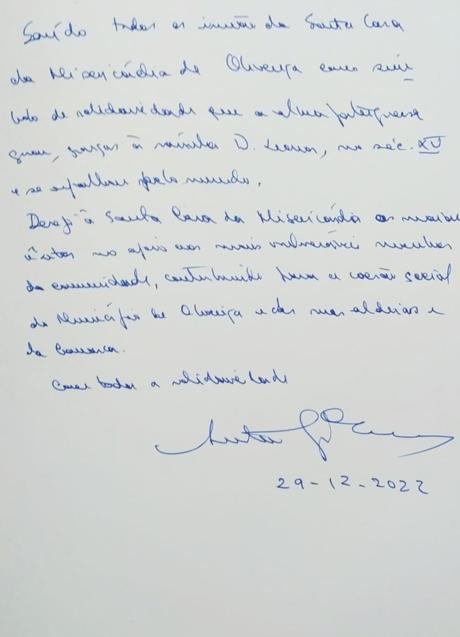 Saúdo todos os irmãos da Santa Casa
da Misericórdia de Olivença como sím
bolo de solidariedade que a alma portuguesa
gerou, graças à rainha D. Leonor, no séc. XV
e se espalhou pelo mundo.
Desejo à Santa Casa da Misericórdia os maiores
êxitos no apoio aos mais vulneráveis membros
da comunidade, contribuindo para a coesão social
do Município de Olivença e das suas aldeias e
da Comarca.
Com toda a solidariedade
29-12-2022